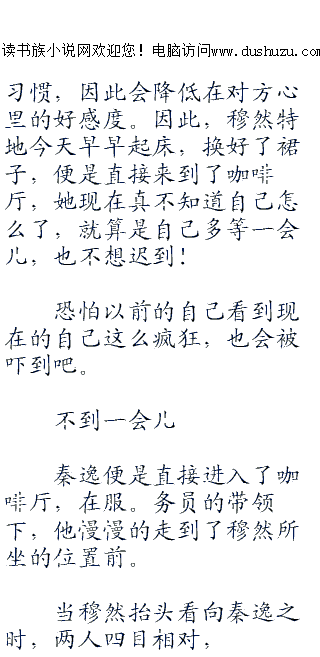 读书族小说网欢迎您！电脑访问www.dushuzu.com
习惯，因此会降低在对方心
里的好感度。因此，穆然特
地今天早早起床，换好了裙
子，便是直接来到了咖啡
厅，她现在真不知道自己怎
么了，就算是自己多等一会
儿，也不想迟到！
恐怕以前的自己看到现
在的自己这么疯狂，也会被
吓到吧。
不到一会儿
秦逸便是直接进入了咖
啡厅，在服。务员的带领
下，他慢慢的走到了穆然所
坐的位置前。
当穆然抬头看向秦逸之
时，两人四目相对，